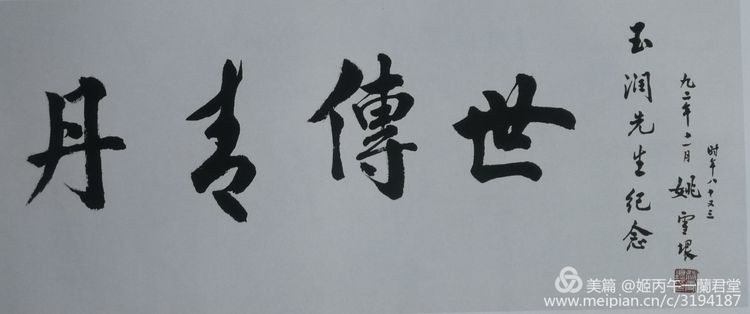 丹青傳世
玉润先生纪念
九二年 月 姚雪垠
时年八十又三
美篇 @姬丙午一蘭君堂
www.meipian.cn/c/3194187